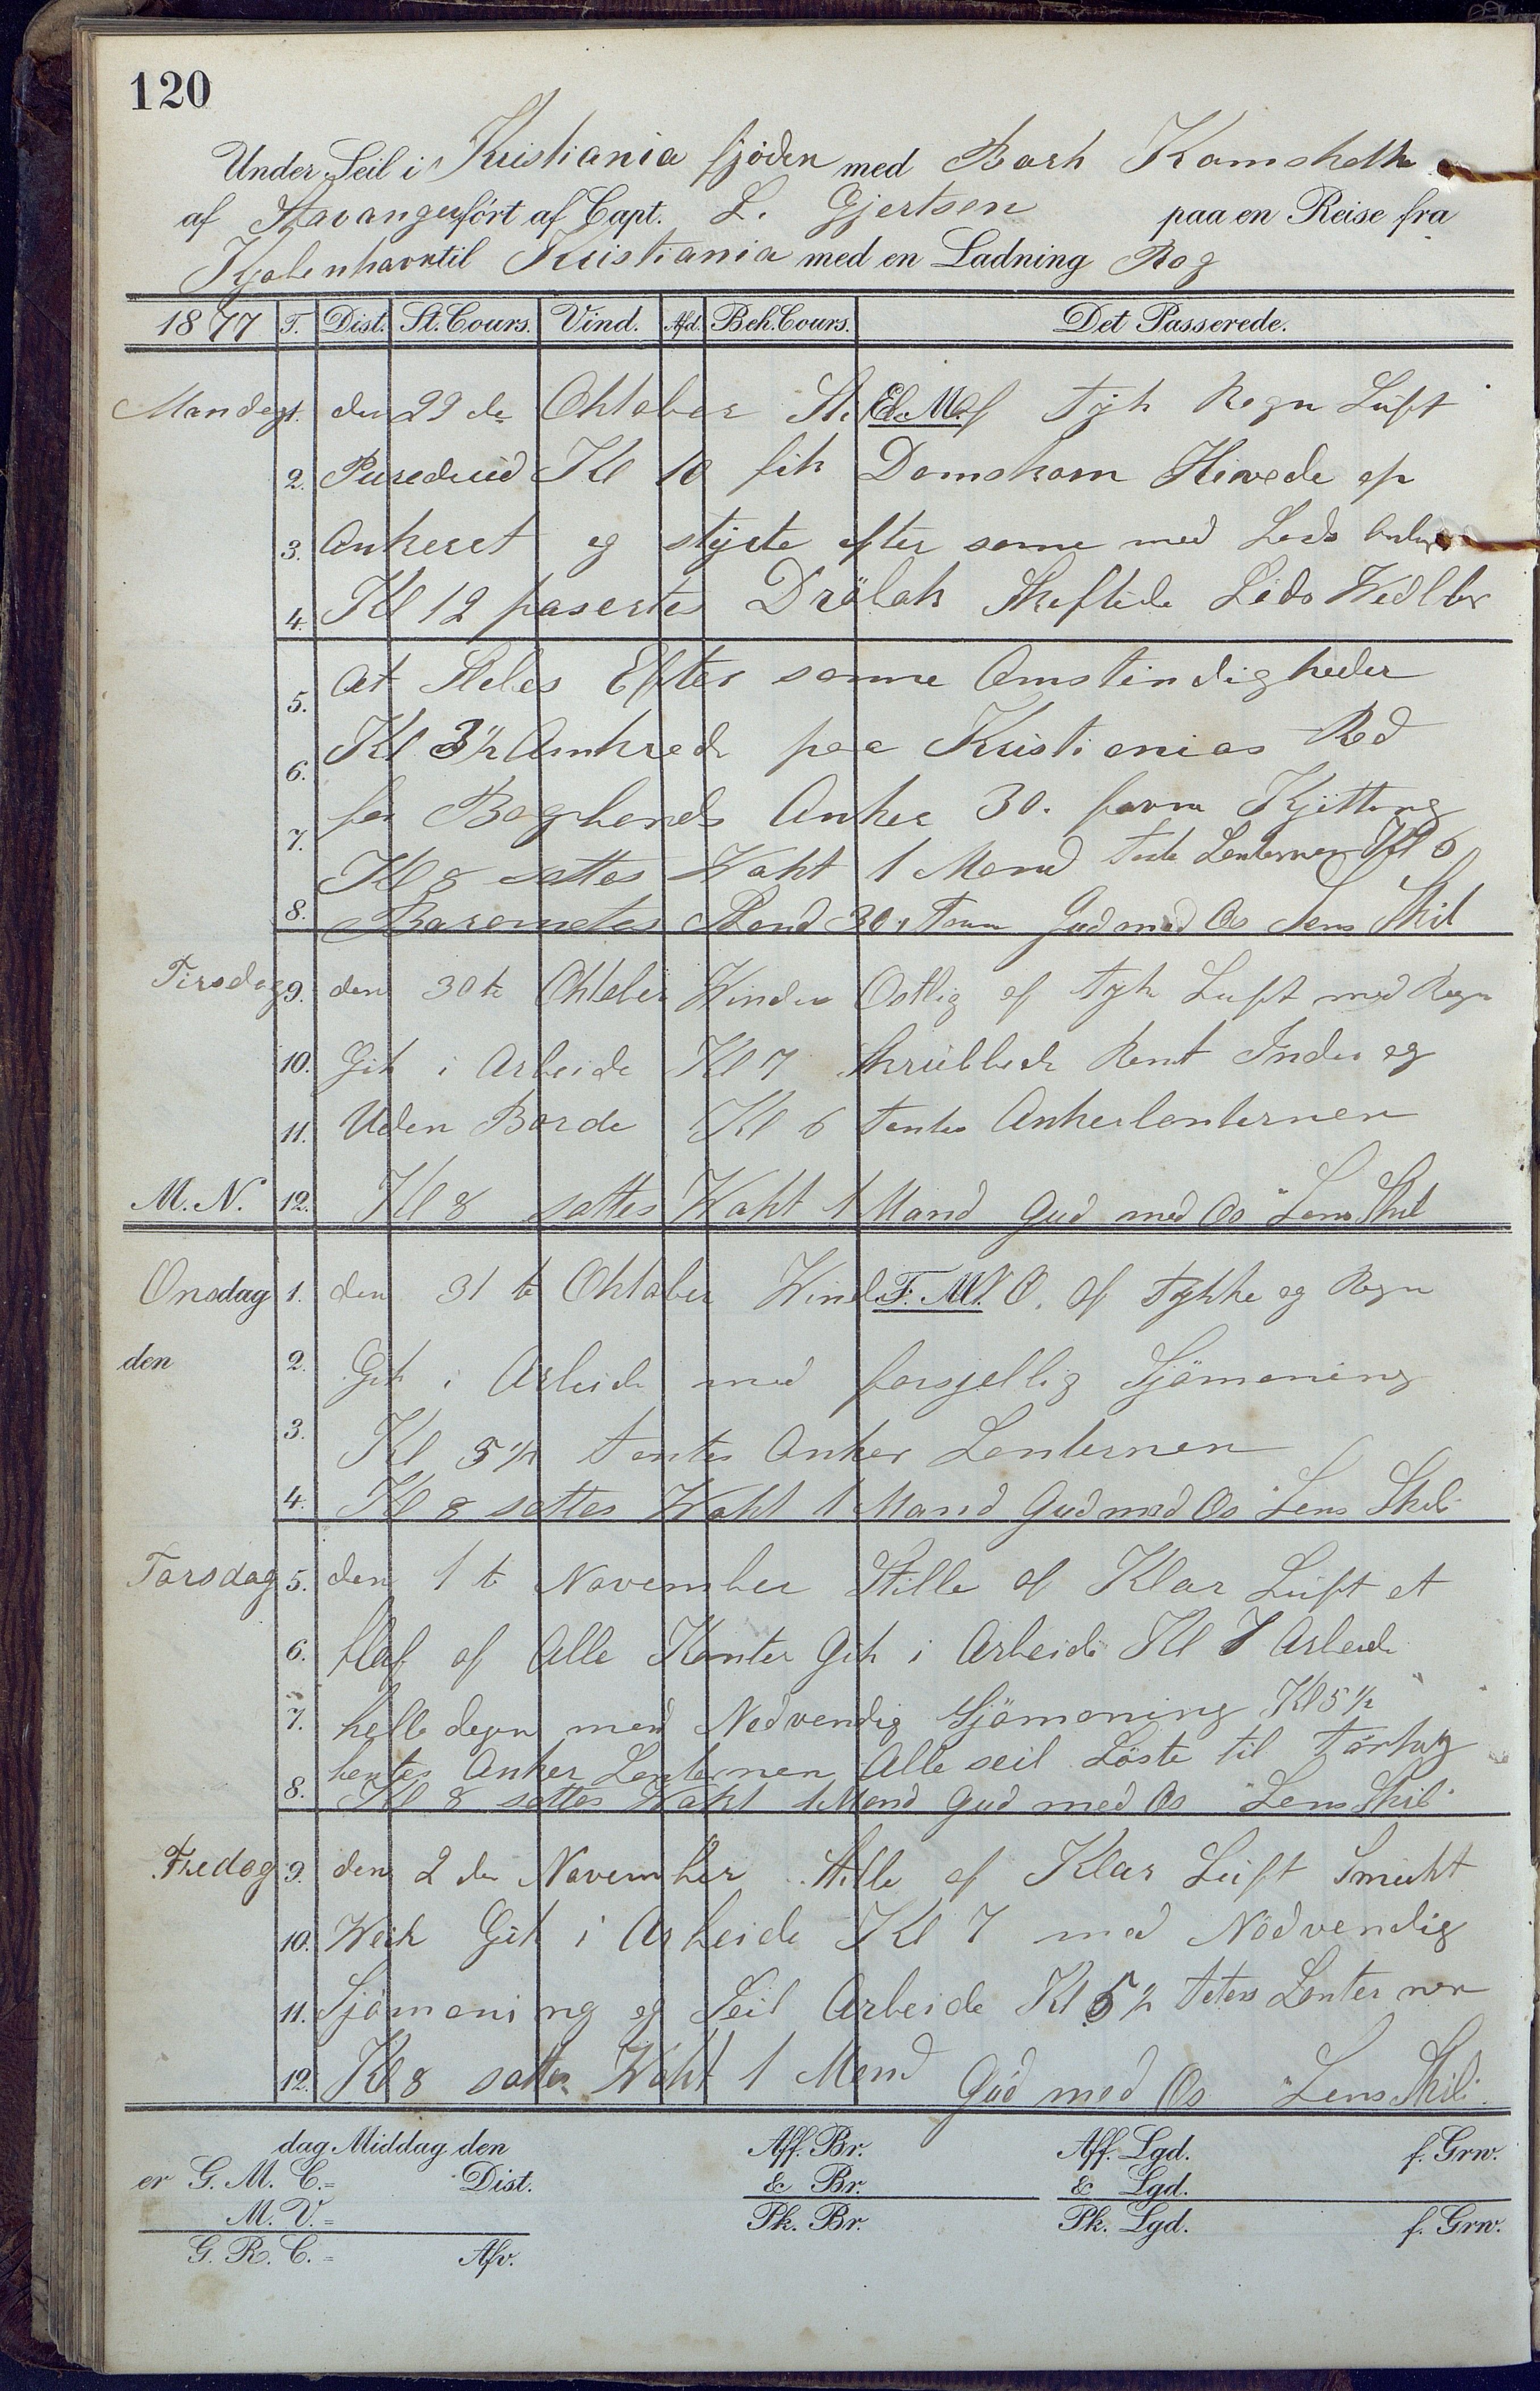 120
Under Seil i Kristiania fjöden med Bark Kamsketh
af Stavanger fört af Capt. L. Gjertsen paa en Reise fra
Kjøbenhavn til Kristiania med en Ladning Rog
1877 T. Dist. St. Cours. Vind. Afd. Beh. Cours. Det Passerede.
Mandag 1. den 29 de Oktober St. E.M. af Tyk Regn Luft
2. Kl 10 fik Hivede op
3. Ankeret og styrte efter some med Lods
4. Kl 12 pasertes Dröbak Skeftede Lods
5. at Seles Efter same Omstindigheder
6. Kl 3½ Ankrede paa Kristianias Red
7. for Bagbords Anker 30. favn Kjitting
Kl 8 sattes Wakt 1 Mand Lanternen Kl 6
8. Barometer Stand 30, Gud med Os Lens Skib
Tirsdag 9. den 30 te Oktober Winden Ostlig af Tyk Luft med Regn
10. Gik i Arbeide Kl 7 Skrubbede Rent Inden og
11. Uden Borde Kl 6 tentes Ankerlanternen
M. N. 12. Kl 8 sattes Wakt 1 Mand Gud med Os Lens Skib
Onsdag 1. den 31 te Oktober Wind F. M. N.O. af tykke og Regn
den 2. Gik i Arbeide med forsjellig Sjömaning
3. Kl 5½ tentes Anker Lanternen
4. Kl 8 sattes Wakt 1 Mand Gud med Os "Lens Skib"
Torsdag 5. den 1 te November Stille af Klar Luft et
6. flaf af Alle Kanter Gik i Arbeide Kl 7 Arbeide
7. helle degen med Nødvendig Sjömaning Kl 5½
hentes Anker Lanternen Alle seil Löste til Törking
8. Kl 8 sattes Wakt 1 Mand Gud med Os "Lens Skib"
Fredag 9. den 2 den November Stille af Klar Luft Smukt
10. Weir Gik i Arbeide Kl 7 med Nödvendig
11. Sjömaning og Seil Arbeide Kl 5½ tetes Lanternen
12. Kl 8 sattes Wakt 1 Mand Gud med Os "Lens Skib".
dag Middag den Aff. Br. Aff. Lgd. f. Grw.
er G. M. C.= Dist. & Br. & Lgd.
M. V.= Pk. Br. Pk. Lgd. f. Grw.
G. R. C.= Afv.